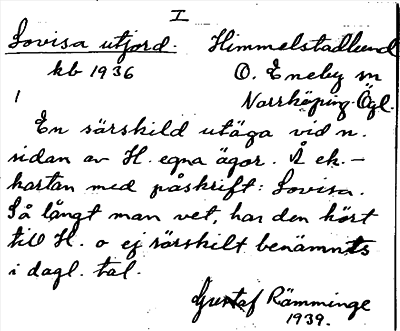 I
Lovisa utjord. Himmelstadlund
kb 1936 Ö. Eneby sn
1 Norrköping. Ögl.
En särskild utäga vid n.
sidan av H. egna ägor. Å ek.-
kartan med påskrift: Lovisa.
Så långt man vet, har den hört
till H. o ej särskilt benämnts
i dagl. tal.
Gustaf Rämminge
1939.